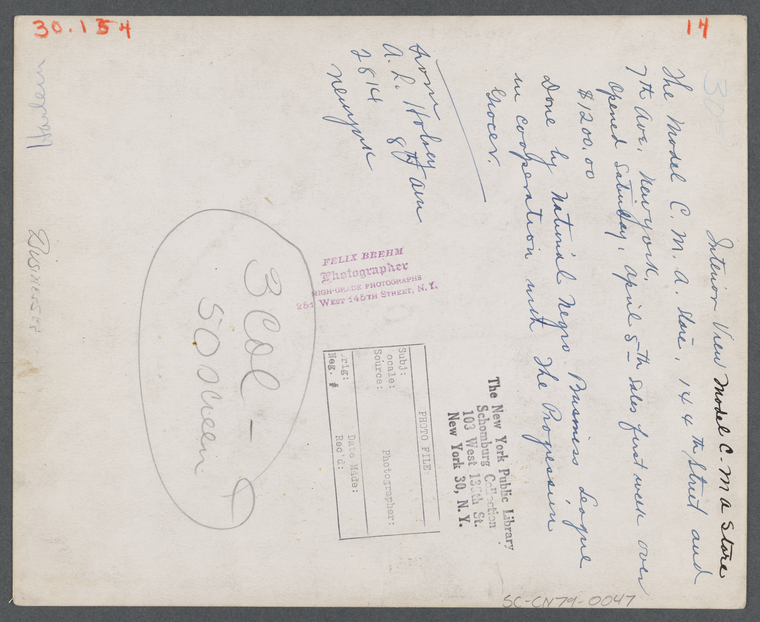 30.154
14
30
Interior View Model C M A Store
The Model C. M. A. Store, 144th Street and
7th Ave. New York.
Opened Saturday, April 5th Sales first week over
$1200.00
Done by National Negro Business League
in cooperation with The Progressive
Grocer.
from
A. L. Holsey
2814 8th Ave
New York
Harlem
Business
FELIX BEEHM
Photographer
HIGH-GRADE PHOTOGRAPHS
251 WEST 145TH STREET, N.Y.
3 col -
50 screen
PHOTO FILE
Subj:
ocale:
Source: Photographer:
rig: Date Made:
Neg. # Rec'd:
The New York Public Library
Schomburg Collection
103 West 135th St.
New York 30, N. Y.
SC-CN79-0047